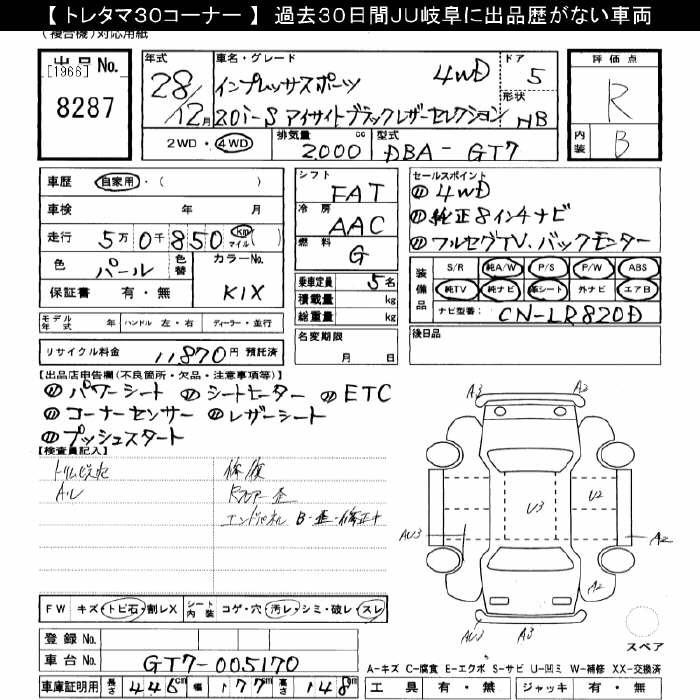 【 トレタマ30コーナー 】 過去30日間JU岐阜に出品歴がない車両
(複合機)対応用紙
出品No. [1966] 8287
年式 28/12月
車名・グレード インプレッサスポーツ 4WD
2.0i-S アイサイトブラックレザーセレクション
ドア 5
形状 HB
2WD・4WD 排気量 2000 cc 型式 DBA-GT7
評価点 R
内装 B
車歴 自家用・( )
車検 年 月
走行 5万0千850 Km マイル ( )
色 パール 色替 カラーNo. K1X
保証書 有・無
モデル年式 年 ハンドル 左・右 ディーラー・並行
リサイクル料金 11870円 預託済
シフト FAT
冷房 AAC
燃料 G
乗車定員 5名
積載量 kg
総重量 kg
名変期限 月 日
セールスポイント
⑪ 4WD
⑪ 純正8インチナビ
⑪ フルセグTV、バックモニター
装備品 S/R 純A/W P/S P/W ABS
純TV 純ナビ 革シート 外ナビ エアB
ナビ型番: CN-LR820D
後日品
【出品店申告欄(不良箇所・欠品・注意事項等)】
⑪ パワーシート ⑪ シートヒーター ⑪ ETC
⑪ コーナーセンサー ⑪ レザーシート
⑪ プッシュスタート
【検査員記入】
修復
エンドパネル B・歪・修正+
FW キズ・トビ石・割レX シート内装 コゲ・穴・汚レ・シミ・破レ・スレ
登録 No.
車台 No. GT7-005170
車庫証明用 長さ 446cm 幅 177cm 高さ 148cm
A3
A2
U3
U2
AU3
A2
A2
AU3
A3
スペア
A-キズ C-腐食 E-エクボ S-サビ U-凹ミ W-補修 XX-交換済
工具 有・無 ジャッキ 有・無